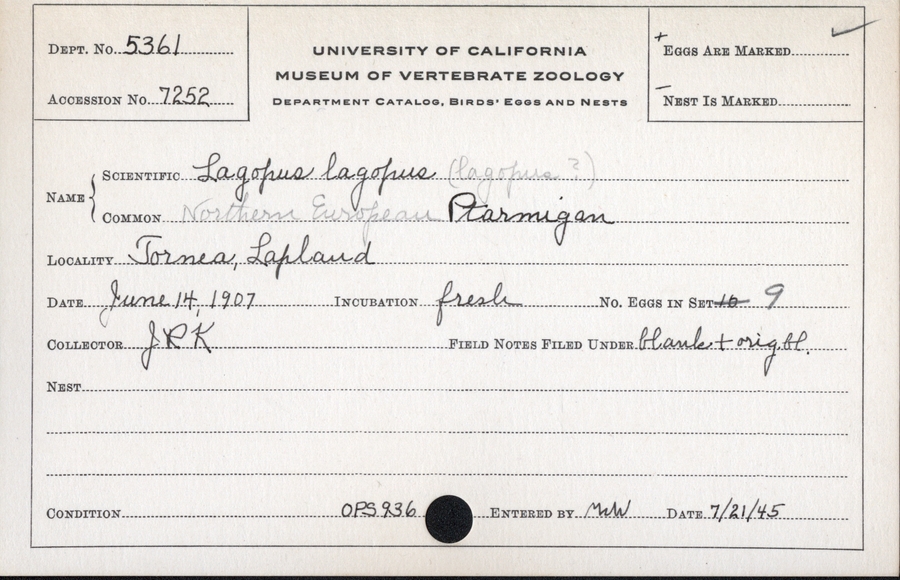 DEPT. No. 5361
ACCESSION No. 7252
UNIVERSITY OF CALIFORNIA
MUSEUM OF VERTEBRATE ZOOLOGY
DEPARTMENT CATALOG, BIRDS' EGGS AND NESTS
+ EGGS ARE MARKED ✓
– NEST IS MARKED
NAME { SCIENTIFIC Lagopus lagopus (lagopus ?)
COMMON Northern European Ptarmigan
LOCALITY Tornea, Lapland
DATE June 14, 1907 INCUBATION fresh No. EGGS IN SET 10 9
COLLECTOR JPK FIELD NOTES FILED UNDER blank + orig bl.
NEST
CONDITION OPS 936 ENTERED BY DATE 7/21/45